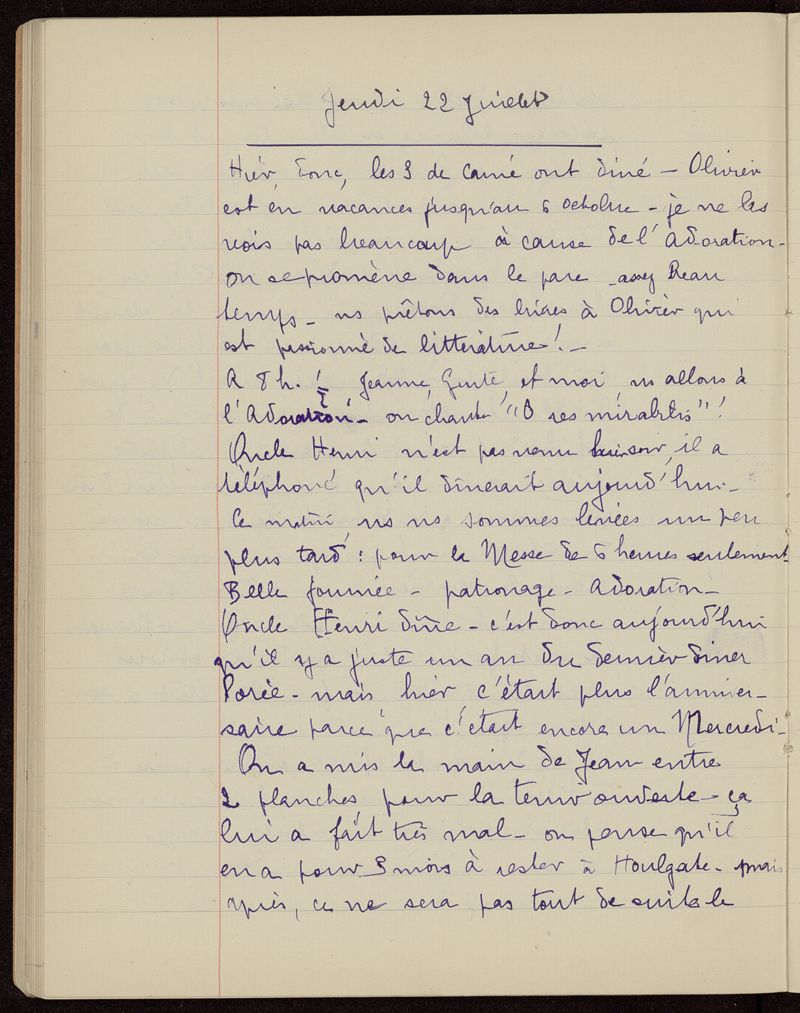 Jeudi 22 Juillet
Hier, donc, les 3 de Camé ont dîné – Olivier
est en vacances jusqu'au 6 octobre – je ne les
vois pas beaucoup à cause de l'Adoration –
on se promène dans le parc – assez Beau
temps – ns prêtons des livres à Olivier qui
est passionné de littérature ! –
A 8 h. ½ Jeanne, et moi, ns allons à
l'Adoration – on chante "O res mirabilis" !
Oncle Henri n'est pas venu hier soir, il a
téléphoné qu'il dînerait aujourd'hui –
Ce matin, ns ns sommes levées un peu
plus tard : pour la Messe de 6 heures seulement
Belle journée – patronage – Adoration –
Oncle Henri dîne – c'est donc aujourd'hui
qu'il y a juste un an du dernier dîner
Porée – mais hier c'était plus l'anniver-
saire parce que c'était encore un Mercredi –
On a mis la main de Jean entre
2 planches, pour la tenir ouverte – ça
lui a fait très mal – on pense qu'il
en a pour 3 mois à rester à Houlgate – mais
après, ce ne sera pas tout de suite le